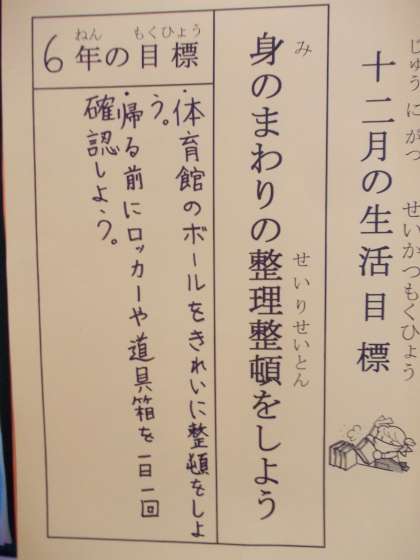 十二月の生活目標
じゅうにがつ せいかつもくひょう
身のまわりの整理整頓をしよう
み せいりせいとん
6年の目標
ねん もくひょう
・体育館のボールをきれいに整頓をしよ
う。
・帰る前にロッカーや道具箱を一日一回
確認しよう。